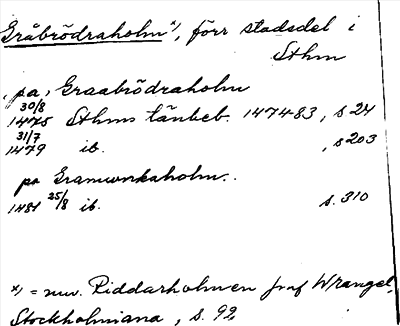 Gråbrödraholm x), förr stadsdel i
Sthm
, pa, Graabrödraholm
1475 30/8 Sthms tänkeb. 1474-83, s 24
1479 31/7 ib. , s 203
pa Gramunkaholm..
1481 25/8 ib. s. 310
x) = nuv. Riddarholmen jmf Wrangel,
Stockholmiana, s. 92